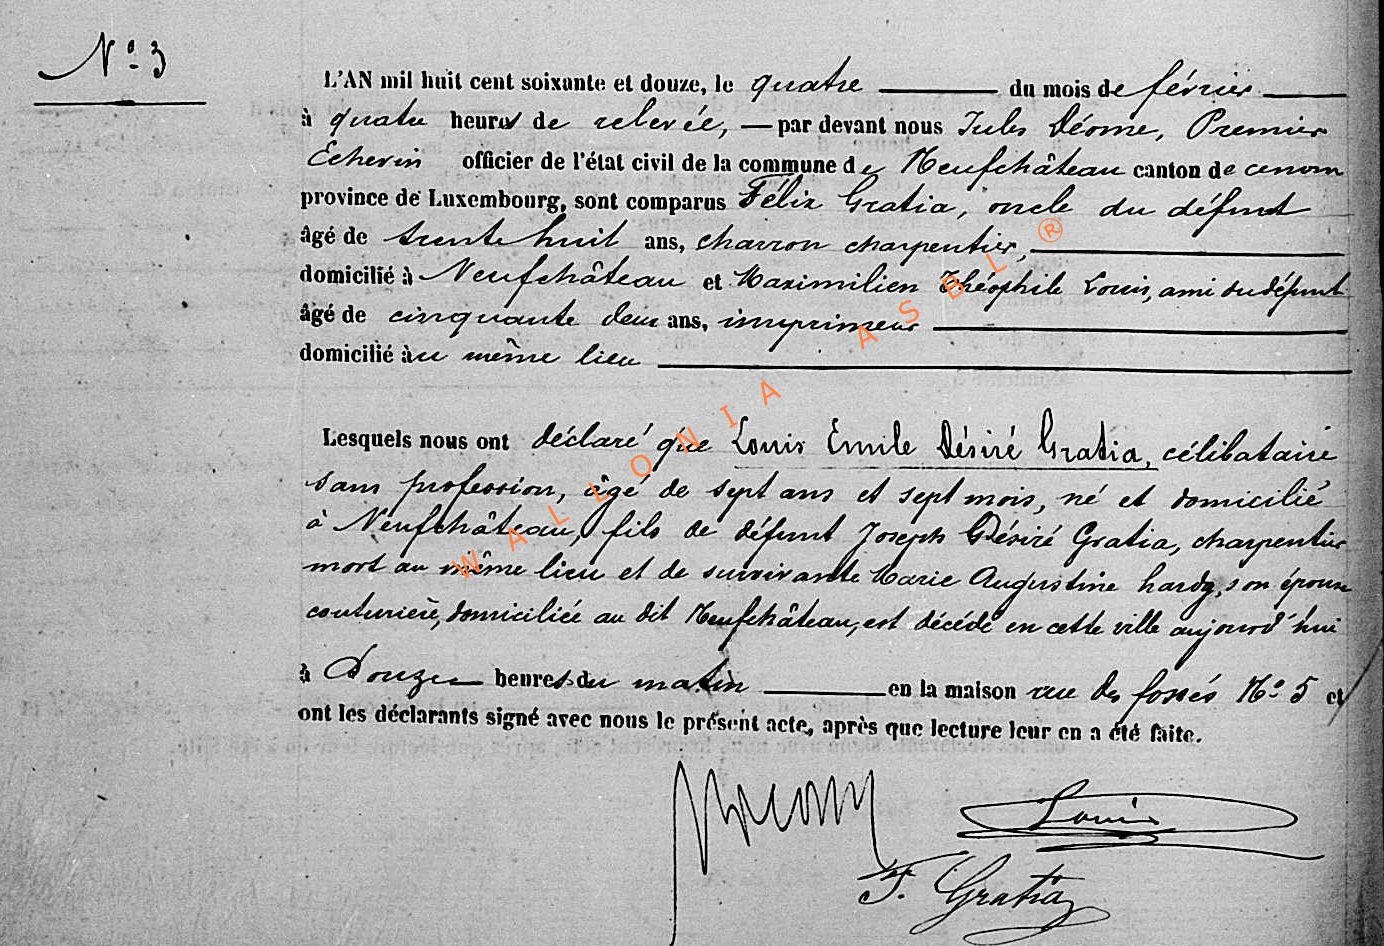 N° 3
L'AN mil huit cent soixante et douze, le quatre du mois de février
à quatre heures de relevée, — par devant nous Jules Déome, Premier
Echevin officier de l'état civil de la commune de Neufchâteau canton de ce nom
province de Luxembourg, sont comparus Félix Gratia, oncle du défunt
âgé de trente huit ans, charron charpentier,
domicilié à Neufchâteau et Maximilien Théophile Louis, ami du défunt
âgé de cinquante deux ans, imprimeur
domicilié au même lieu
Lesquels nous ont déclaré que Louis Emile Désiré Gratia, célibataire
sans profession, âgé de sept ans et sept mois, né et domicilié
à Neufchâteau, fils de défunt Joseph Désiré Gratia, charpentier
mort au même lieu et de survivante Marie Augustine hardy, son épouse
couturière, domiciliée au dit Neufchâteau, est décédé en cette ville aujourd'hui
à Douze heures du matin en la maison rue des fossés N° 5 et
ont les déclarants signé avec nous le présent acte, après que lecture leur en a été faite.
Louis
F. Gratia
WALLONIA ASBL ®